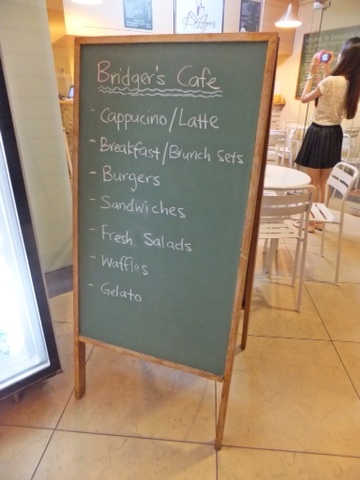 Bridger's Cafe
- Cappucino/Latte
- Breakfast/Brunch Sets
- Burgers
- Sandwiches
- Fresh Salads
- Waffles
- Gelato